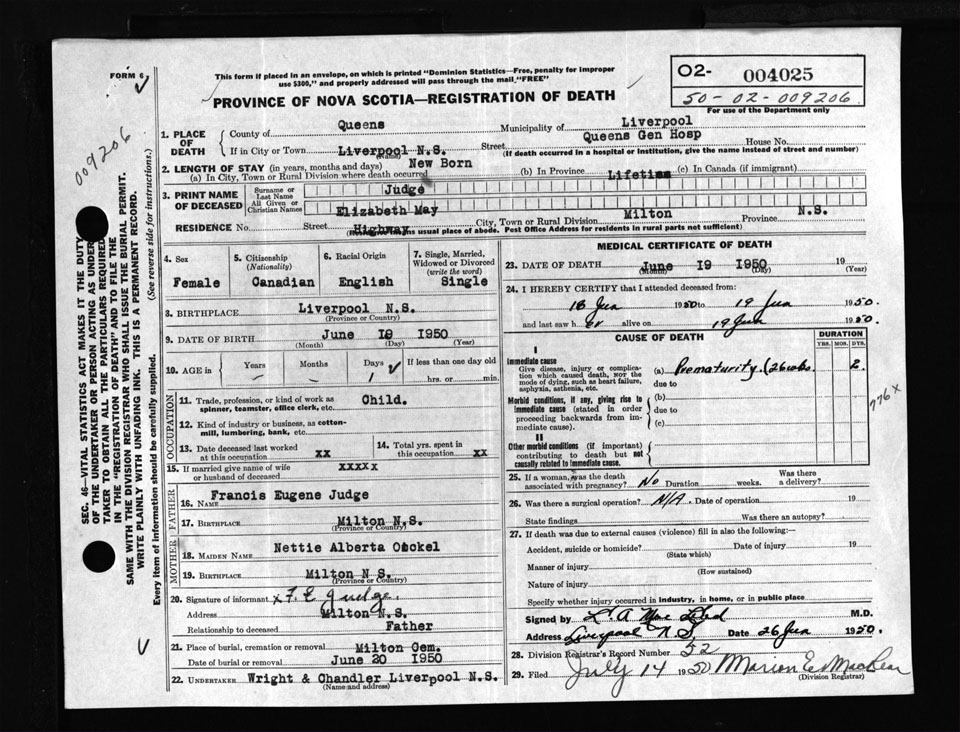 FORM 6
This form if placed in an envelope, on which is printed "Dominion Statistics—Free, penalty for improper
use $300," and properly addressed will pass through the mail "FREE"
PROVINCE OF NOVA SCOTIA—REGISTRATION OF DEATH
O2- 004025
50-02-009206
For use of the Department only
009206
SEC. 46—VITAL STATISTICS ACT MAKES IT THE DUTY
OF THE UNDERTAKER OR PERSON ACTING AS UNDER
TAKER TO OBTAIN ALL THE PARTICULARS REQUIRED
IN THE "REGISTRATION OF DEATH" AND TO FILE THE
SAME WITH THE DIVISION REGISTRAR WHO SHALL ISSUE THE BURIAL PERMIT.
WRITE PLAINLY WITH UNFADING INK. THIS IS A PERMANENT RECORD.
Every item of information should be carefully supplied. (See reverse side for instructions.)
1. PLACE OF DEATH
County of Queens Municipality of Liverpool
If in City or Town Liverpool N.S. Street Queens Gen Hosp House No.
(Name) (If death occurred in a hospital or institution, give the name instead of street and number)
2. LENGTH OF STAY (in years, months and days)
(a) In City, Town or Rural Division where death occurred New Born (b) In Province Lifetime (c) In Canada (if immigrant)
3. PRINT NAME OF DECEASED
Surname or Last Name Judge
All Given or Christian Names Elizabeth May
RESIDENCE No. Street Highway City, Town or Rural Division Milton Province N.S.
(Residence means usual place of abode. Post Office Address for residents in rural parts not sufficient)
4. Sex
Female
5. Citizenship (Nationality)
Canadian
6. Racial Origin
English
7. Single, Married, Widowed or Divorced (write the word)
Single
8. BIRTHPLACE Liverpool N.S.
(Province or Country)
9. DATE OF BIRTH June 18 1950
(Month) (Day) (Year)
10. AGE in Years Months Days If less than one day old
1 hrs. or min.
OCCUPATION
11. Trade, profession, or kind of work as
spinner, teamster, office clerk, etc. Child.
12. Kind of industry or business, as cotton-
mill, lumbering, bank, etc.
13. Date deceased last worked
at this occupation xx
14. Total yrs. spent in
this occupation xx
15. If married give name of wife
or husband of deceased xxxxx
FATHER
16. NAME Francis Eugene Judge
17. BIRTHPLACE Milton N.S.
(Province or Country)
MOTHER
18. MAIDEN NAME Nettie Alberta
19. BIRTHPLACE Milton N S.
(Province or Country)
20. Signature of informant x F. E Judge.
Address Milton N.S.
Relationship to deceased Father
21. Place of burial, cremation or removal Milton Cem.
Date of burial or removal June 20 1950
22. UNDERTAKER Wright & Chandler Liverpool N.S.
(Name and address)
MEDICAL CERTIFICATE OF DEATH
23. DATE OF DEATH June 19 1950 19
(Month) (Day) (Year)
24. I HEREBY CERTIFY that I attended deceased from
18 Jun 1950 to 19 Jun 1950.
and last saw h er alive on 19 Jun 1950.
CAUSE OF DEATH
DURATION
YRS. MOS. DYS.
I
Immediate cause
Give disease, injury or complica-
tion which caused death, NOT the
mode of dying, such as heart failure,
asphyxia, asthenia, etc.
(a) Prematurity. (26wks. 2.
due to
Morbid conditions, if any, giving rise to
immediate cause (stated in order
proceeding backwards from im-
mediate cause).
(b)
due to
(c)
776 x
II
Other morbid conditions (if important)
contributing to death but not
causally related to immediate cause.
25. If a woman, was the death
associated with pregnancy? No Duration weeks. Was there
a delivery?
26. Was there a surgical operation? N/A. Date of operation 19
State findings Was there an autopsy?
27. If death was due to external causes (violence) fill in also the following:—
Accident, suicide or homicide? Date of injury 19
(State which)
Manner of injury
(How sustained)
Nature of injury
Specify whether injury occurred in industry, in home, or in public place
Signed by L. A Mac Leod M.D.
Address Liverpool N S. Date 26 Jun 1950.
28. Division Registrar's Record Number 52
29. Filed July 14 1950 Marion E.
(Division Registrar)